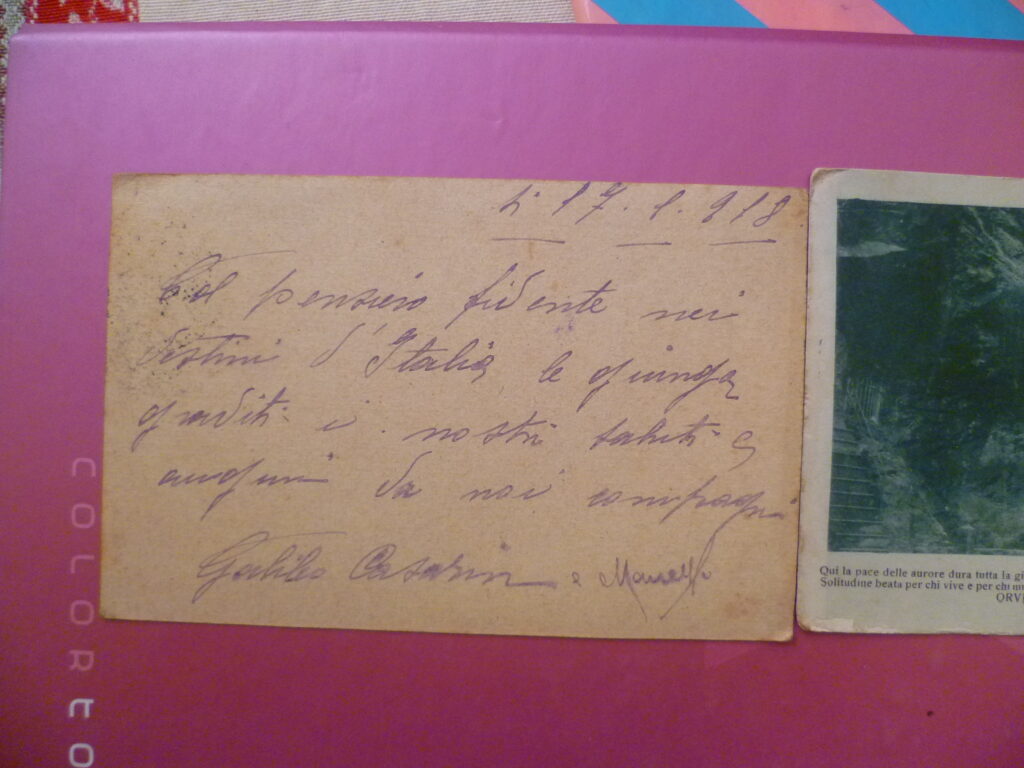 li 17. 1. 918
Col pensiero fidente nei
destini d'Italia le giunga
graditi i nostri saluti e
auguri da noi compagni
Galileo Casarin e
Qui la pace delle aurore dura tutta la gi
Solitudine beata per chi vive e per chi mu
ORVI
COLORTO